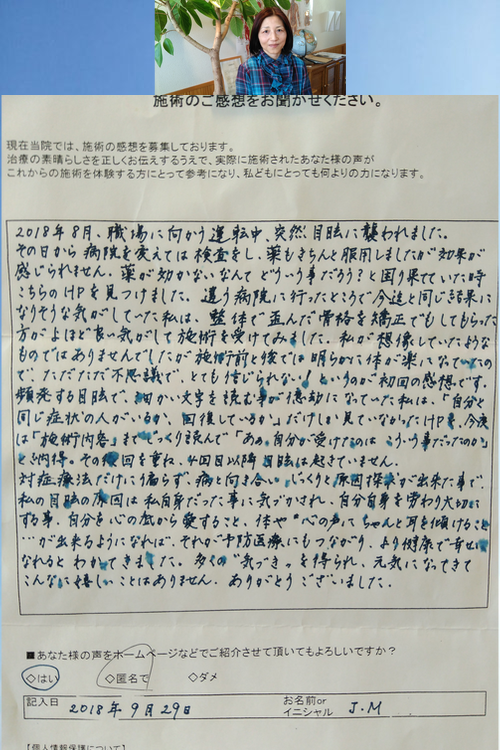 施術のご感想をお聞かせください。
現在当院では、施術の感想を募集しております。
治療の素晴らしさを正しくお伝えするうえで、実際に施術されたあなた様の声が
これからの施術を体験する方にとって参考になり、私どもにとっても何よりの力になります。
2018年8月、職場に向かう運転中、突然目眩に襲われました。
その日から病院を変えては検査をし、薬もきちんと服用しましたが効果が
感じられません。薬が効かないなんてどういう事だろう?と困り果てていた時
こちらのHPを見つけました。違う病院に行ったところで今迄と同じ結果に
なりそうな気がしていた私は、整体で歪んだ骨格を矯正でもしてもらった
方がよほど良い気がして施術を受けてみました。私が想像していたような
ものではありませんでしたが施術前と後では明らかに体が楽になっていたの
で、ただただ不思議で、とても信じられない!というのが初回の感想です。
頻発する目眩で、細かい文字を読む事が億劫になっていた私は、「自分と
同じ症状の人がいるか、回復しているか」だけしか見ていなかったHPを、今度
は「施術内容」までじっくり読んで「あぁ。自分が受けたのはこういう事だったのか」
と納得。その後回を重ね、4回目以降目眩は起きていません。
対症療法だけに偏らず、病と向き合いじっくりと原因探求が出来た事で、
私の目眩の原因は私自身だった事に気づかされ、自分自身を労わり大切に
する事、自分を心の底から愛すること、体や心の声にちゃんと耳を傾けること
が出来るようになれば、それが予防医療にもつながり、より健康で幸せに
なれるとわかってきました。多くの"気づき"を得られ、元気になってきて
こんなに嬉しいことはありません。ありがとうございました。
■あなた様の声をホームページなどでご紹介させて頂いてもよろしいですか?
◇はい ◇匿名で ◇ダメ
記入日 2018年9月29日 お名前or
イニシャル J.M
【個人情報保護について】